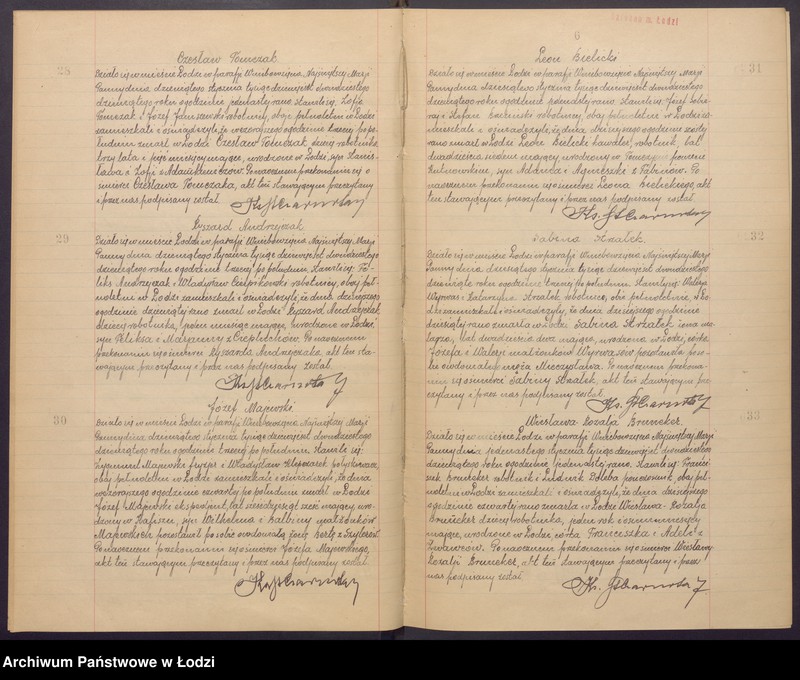 Czesław Tomczak
28
Działo się w mieście Łodzi w parafji Wniebowzięcia Najświętszej Marji
Panny dnia dziesiątego stycznia tysiąc dziewięćset dwudziestego
dziewiątego roku o godzinie rano. Stawili się: Zofja
Tomczak i Józef robotnicy, oboje pełnoletni w Łodzi
zamieszkali i oświadczyli, że wczoraj o godzinie trzeciej po po-
łudniu zmarł w Łodzi Czesław Tomczak, dziecię robotnika,
trzy lata i pięć miesięcy mające, urodzone w Łodzi, syn Stanis-
ława i Zofji z Po naocznem przekonaniu się o
śmierci Czesława Tomczaka, akt ten stawającym przeczytany
i przez nas podpisany został.
Ryszard Andrzejczak
29
Działo się w mieście Łodzi w parafji Wniebowzięcia Najświętszej Marji
Panny dnia dziesiątego stycznia tysiąc dziewięćset dwudziestego
dziewiątego roku o godzinie trzeciej po południu. Stawili się: Fe-
liks Andrzejczak i Władysław robotnicy, obaj peł-
noletni w Łodzi zamieszkali i oświadczyli, że dnia dzisiejszego
o godzinie dziesiątej rano zmarł w Łodzi Ryszard Andrzejczak
dziecię robotnika, jeden miesiąc mające, urodzone w Łodzi,
syn Feliksa i Marjanny z Po naocznem
przekonaniu się o śmierci Ryszarda Andrzejczaka, akt ten sta-
wającym przeczytany i przez nas podpisany został.
Józef Majewski
30
Działo się w mieście Łodzi w parafji Wniebowzięcia Najświętszej Marji
Panny dnia dziesiątego stycznia tysiąc dziewięćset dwudziestego
dziewiątego roku o godzinie trzeciej po południu. Stawili się:
Majewski fryzjer i Władysław
obaj pełnoletni w Łodzi zamieszkali i oświadczyli, że dnia
wczorajszego o godzinie czwartej po południu zmarł w Łodzi
Józef Majewski ekspedjent, lat sześć mający, uro-
dzony w syn Wilhelma i Balbiny małżonków
Majewskich pozostawił po sobie owdowiałą żonę Bertę z
Po naocznem przekonaniu się o śmierci Józefa Majewskiego,
akt ten stawającym przeczytany i przez nas podpisany został.
6
Leon Bielicki
31
Działo się w mieście Łodzi w parafji Wniebowzięcia Najświętszej Marji
Panny dnia dziesiątego stycznia tysiąc dziewięćset dwudziestego
dziewiątego roku o godzinie rano. Stawili się: Józef
i Stefan robotnicy, obaj pełnoletni w Łodzi za-
mieszkali i oświadczyli, że dnia dzisiejszego o godzinie
rano zmarł w Łodzi Leon Bielicki kawaler, robotnik, lat
dwadzieścia siedem mający, urodzony w powiecie
syn Adama i Agnieszki z Po
naocznem przekonaniu się o śmierci Leona Bielickiego, akt
ten stawającym przeczytany i przez nas podpisany został.
Sabina Strzałek
32
Działo się w mieście Łodzi w parafji Wniebowzięcia Najświętszej Marji
Panny dnia dziesiątego stycznia tysiąc dziewięćset dwudziestego
dziewiątego roku o godzinie trzeciej po południu. Stawili się: Walery
Wyrwas i Katarzyna Strzałek, robotnicy, oboje pełnoletni w Ło-
dzi zamieszkali i oświadczyli, że dnia dzisiejszego o godzinie
dziesiątej rano zmarła w Łodzi Sabina Strzałek żona
lat dwadzieścia dwa mająca, urodzona w Łodzi, córka
Józefa i Walerji małżonków Wyrwasów pozostawiła po so-
bie owdowiałego męża Mieczysława. Po naocznem przekona-
niu się o śmierci Sabiny Strzałek, akt ten stawającym prze-
czytany i przez nas podpisany został.
Wiesława Rozalja Bruneker
33
Działo się w mieście Łodzi w parafji Wniebowzięcia Najświętszej Marji
Panny dnia jedenastego stycznia tysiąc dziewięćset dwudziestego
dziewiątego roku o godzinie jedenastej rano. Stawili się: Franci-
szek Bruneker robotnik i Ludwik obaj peł-
noletni w Łodzi zamieszkali i oświadczyli, że dnia dzisiejszego
o godzinie czwartej rano zmarła w Łodzi Wiesława-Rozalja
Bruneker dziecię robotnika, jeden rok i osiem miesięcy
mające, urodzone w Łodzi córka Franciszka i Adeli z
Po naocznem przekonaniu się o śmierci Wiesławy
Rozalji Bruneker, akt ten stawającym przeczytany i przez
nas podpisany został
Archiwum Państwowe w Łodzi